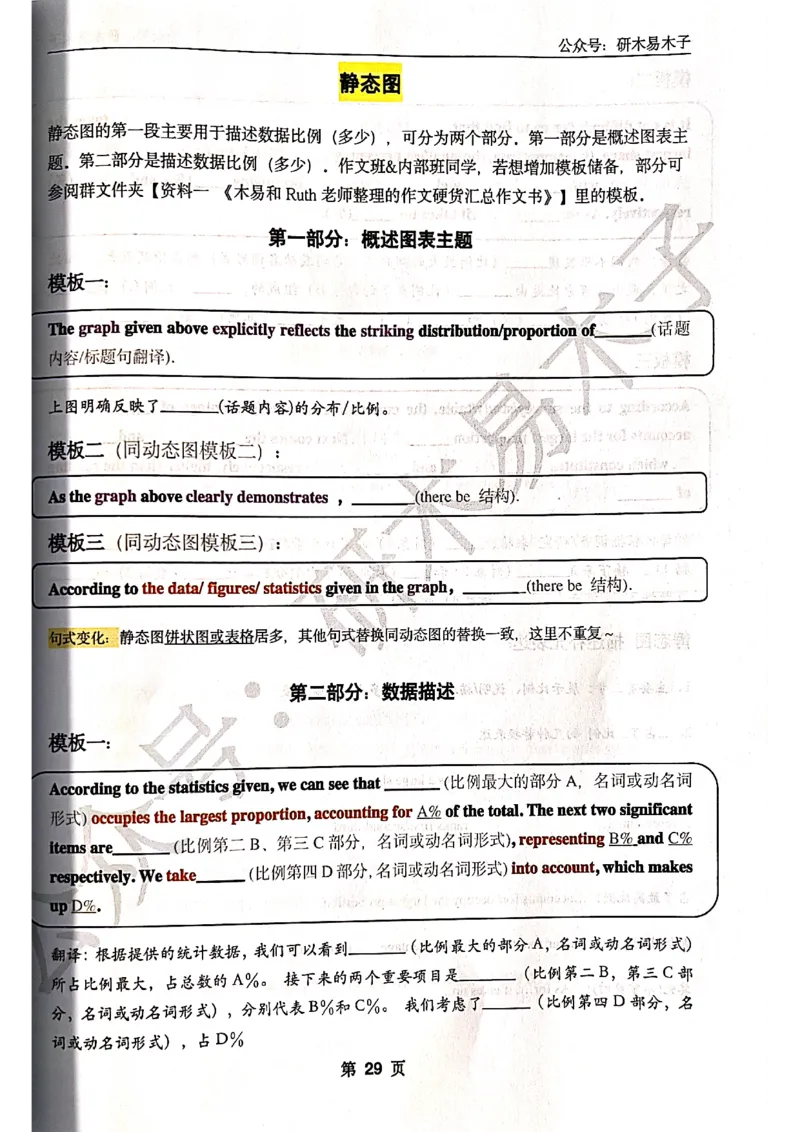 公众号：研木易木子
静态图
静态图的第一段主要用于描述数据比例（多少），可分为两个部分．第一部分是概述图表主
题．第二部分是描述数据比例（多少）．作文班&内部班同学，若想增加模板储备，部分可
参阅群文件夹【资料一 《木易和 Ruth 老师整理的作文硬货汇总作文书》】里的模板．
第一部分：概述图表主题
模板一：
The graph given above explicitly reflects the striking distribution/proportion of______(话题
内容/标题句翻译).
上图明确反映了______(话题内容)的分布/比例。
模板二（同动态图模板二）：
As the graph above clearly demonstrates ，______(there be 结构).
模板三（同动态图模板三）：
According to the data/ figures/ statistics given in the graph，______(there be 结构).
句式变化：静态图饼状图或表格居多，其他句式替换同动态图的替换一致，这里不重复~
第二部分：数据描述
模板一：
According to the statistics given, we can see that ______（比例最大的部分 A，名词或动名词
形式）occupies the largest proportion, accounting for A% of the total. The next two significant
items are______（比例第二 B、第三 C 部分，名词或动名词形式）, representing B% and C%
respectively. We take______（比例第四 D 部分，名词或动名词形式）into account, which makes
up D%.
翻译：根据提供的统计数据，我们可以看到______（比例最大的部分 A，名词或动名词形式）
所占比例最大，占总数的 A%。 接下来的两个重要项目是______（比例第二 B，第三 C 部
分，名词或动名词形式），分别代表 B%和 C%。 我们考虑了______（比例第四 D 部分，名
词或动名词形式），占 D%
第 29 页
公众号：研木易木子